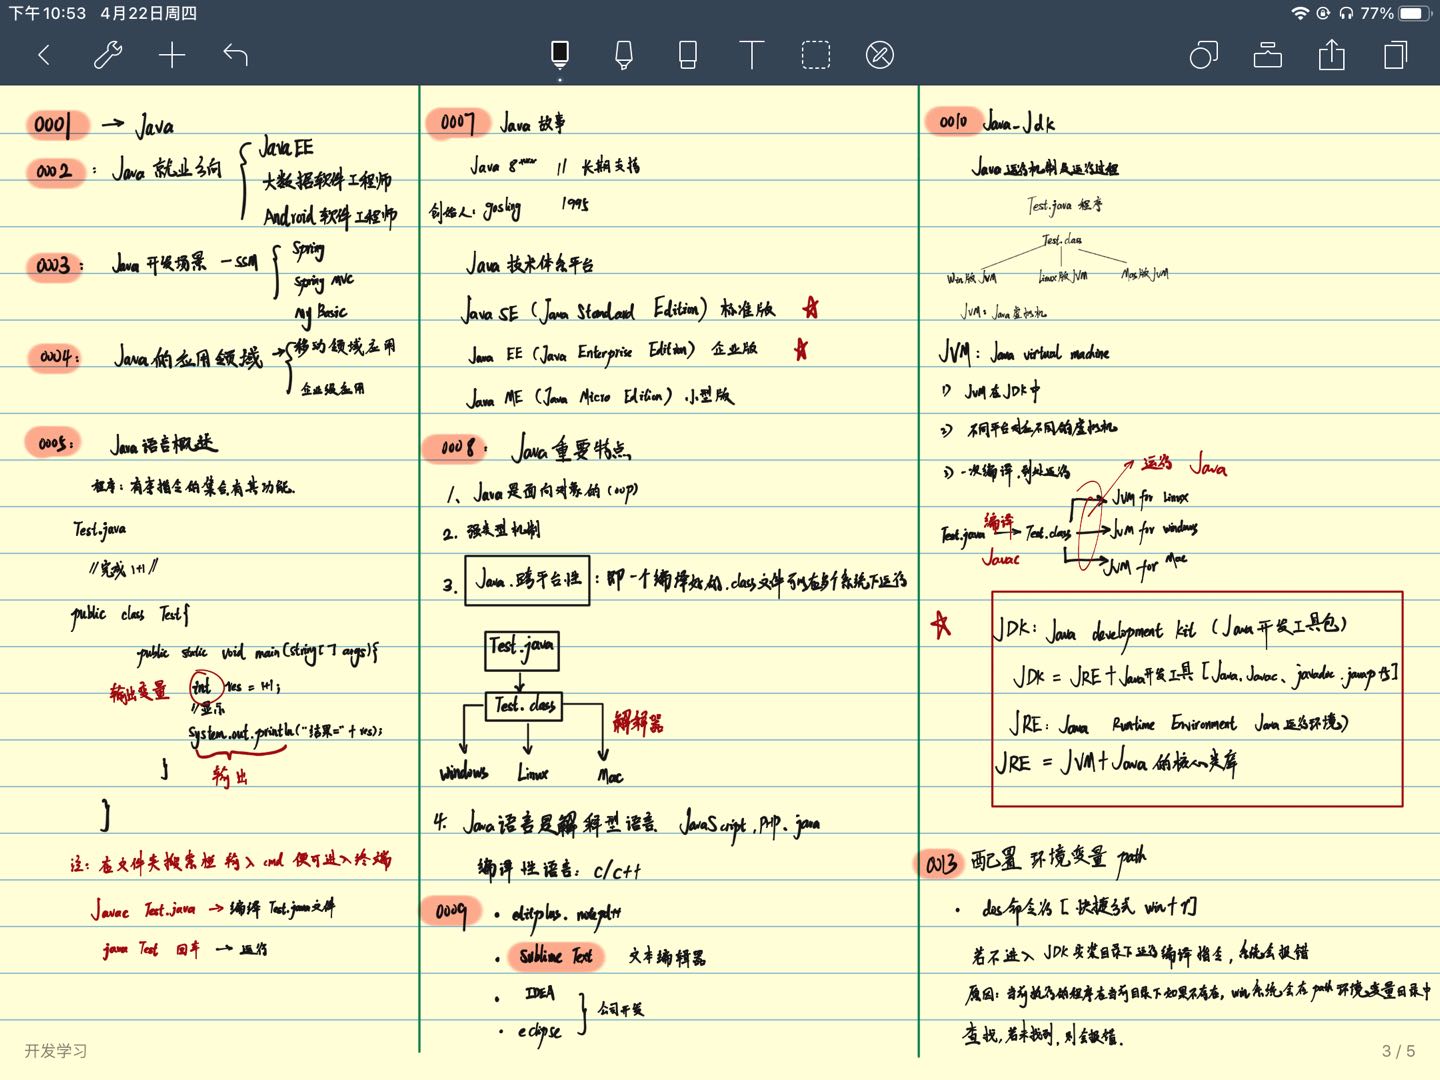 下午10:53 4月22日周四
77%
0001 → Java
0002 : Java 就业方向
Java EE
大数据软件工程师
Android 软件工程师
0003 : Java 开发场景 - SSM
Spring
Spring MVC
My Basic
0004: Java的应用领域 →
移动领域应用
企业级应用
0005: Java语言概述
程序：有序指令的集合,有其功能.
Test.java
//完成1+1//
public class Test{
public static void main(String[] args){
输出变量 int res = 1+1;
//显示
System.out.println("结果="+res);
输出
}
}
注：在文件夹搜索栏输入cmd 便可进入终端
Javac Test.java → 编译 Test.java文件
java Test 回车 → 运行
0007 Java 故事
Java 8 // 长期支持
创始人：gosling 1995
Java 技术体系平台
Java SE (Java Standard Edition) 标准版
Java EE (Java Enterprise Edition) 企业版
Java ME (Java Micro Edition) 小型版
0008: Java重要特点
1、Java是面向对象的 (oop)
2. 强类型机制
3. Java.跨平台性 : 即一个编译好的.class文件可以在多个系统下运行
Test.java
Test.class
解释器
Windows Linux Mac
4. Java语言是解释型语言 JavaScript,PHP、java
编译性语言：c/c++
0009 • editplus、notepad++
• Sublime Text 文本编辑器
• IDEA
公司开发
• eclipse
0010 Java-Jdk
Java运行机制及运行过程
Test.java 程序
Test.class
Win版JVM Linux版JVM Mac版JVM
JVM：Java虚拟机
JVM：Java virtual machine
1) JVM在JDK中
2) 不同平台对应不同的虚拟机
3) 一次编译,到处运行
运行 Java
JVM for Linux
Test.java 编译 → Test.class
Javac
JVM for windows
JVM for Mac
JDK: Java development kit (Java开发工具包)
JDK = JRE+Java开发工具 [Java, Javac、javadoc、javap等]
JRE: Java Runtime Environment Java运行环境)
JRE = JVM+Java的核心类库
0013 配置环境变量 path
• dos命令行 [ 快捷方式 win+r]
若不进入JDK安装目录下运行编译指令，系统会报错
原因：当前执行的程序在当前目录下如果不存在，win系统会在path环境变量目录中
查找,若未找到,则会报错.
开发学习
3 / 5